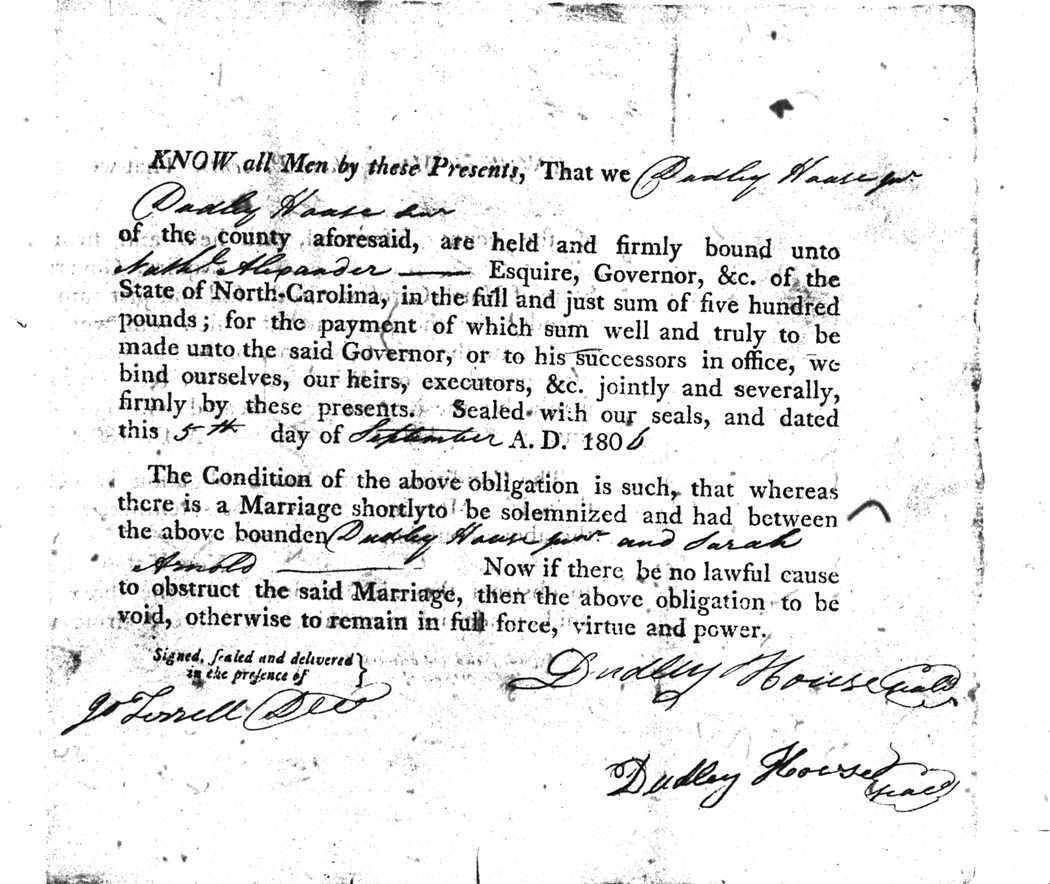 KNOW all Men by these Presents, That we Dudley House junr
Dudley House senr
of the county aforesaid, are held and firmly bound unto
Nathl Alexander —— Esquire, Governor, &c. of the
State of North-Carolina, in the full and just sum of five hundred
pounds; for the payment of which sum well and truly to be
made unto the said Governor, or to his successors in office, we
bind ourselves, our heirs, executors, &c. jointly and severally,
firmly by these presents. Sealed with our seals, and dated
this 5th day of September A. D. 1806
The Condition of the above obligation is such, that whereas
there is a Marriage shortlyto be solemnized and had between
the above bounden Dudley House junr and Sarah
Arnold —— Now if there be no lawful cause
to obstruct the said Marriage, then the above obligation to be
void, otherwise to remain in full force, virtue and power.
Signed, sealed and delivered }
in the presence of
Dudley House (seal)
Jo Terrell DCC
Dudley House (seal)